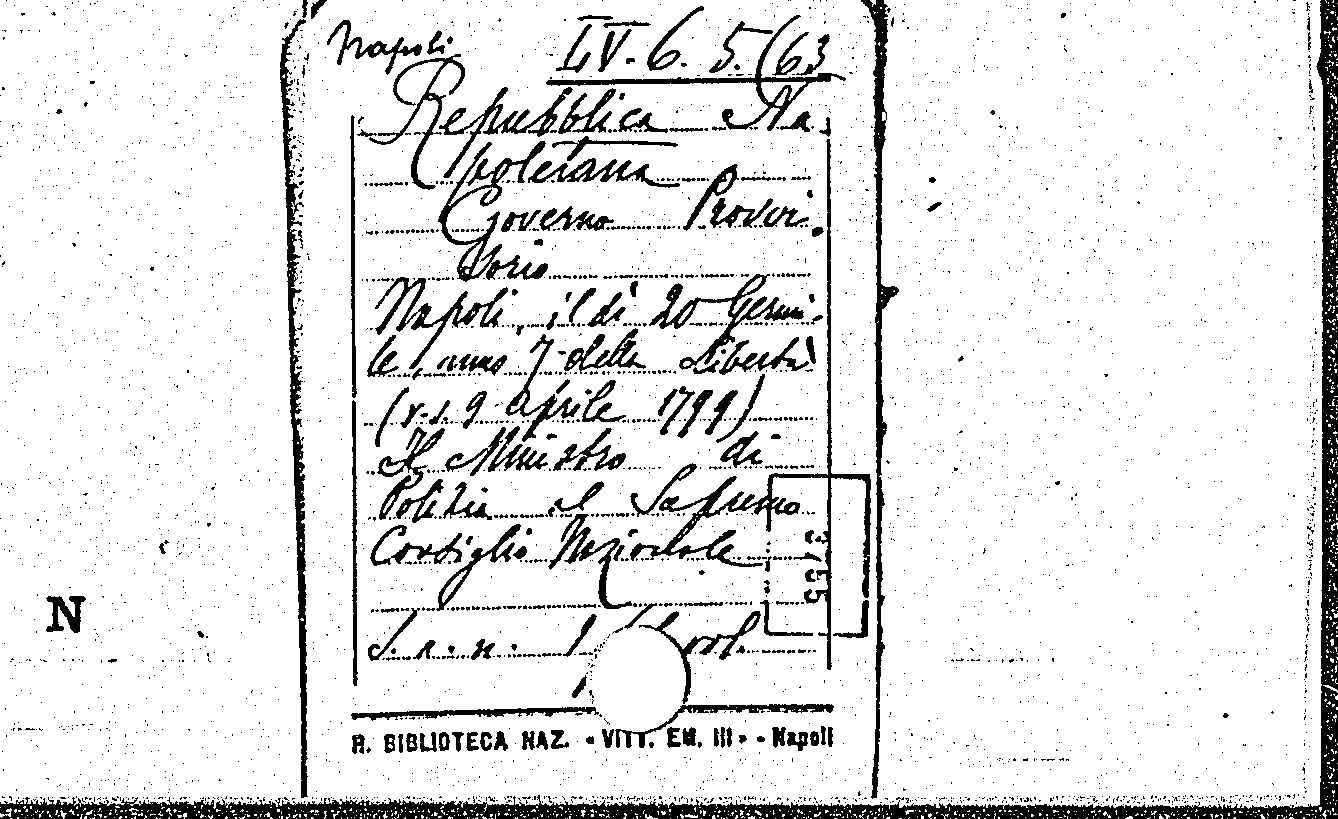 Napoli LV. 6. 5. (63
Repubblica Na
poletana
Governo Provvi
sorio
Napoli, il dì 20 Germi-
le, anno 7 della Libertà
(v.s. 9 aprile 1799)
Il Ministro di
Polizia al Supremo
Consiglio Nazionale
S. n. n. 1 vol.
R. BIBLIOTECA NAZ. «VITT. EM. III» - Napoli
3755
N